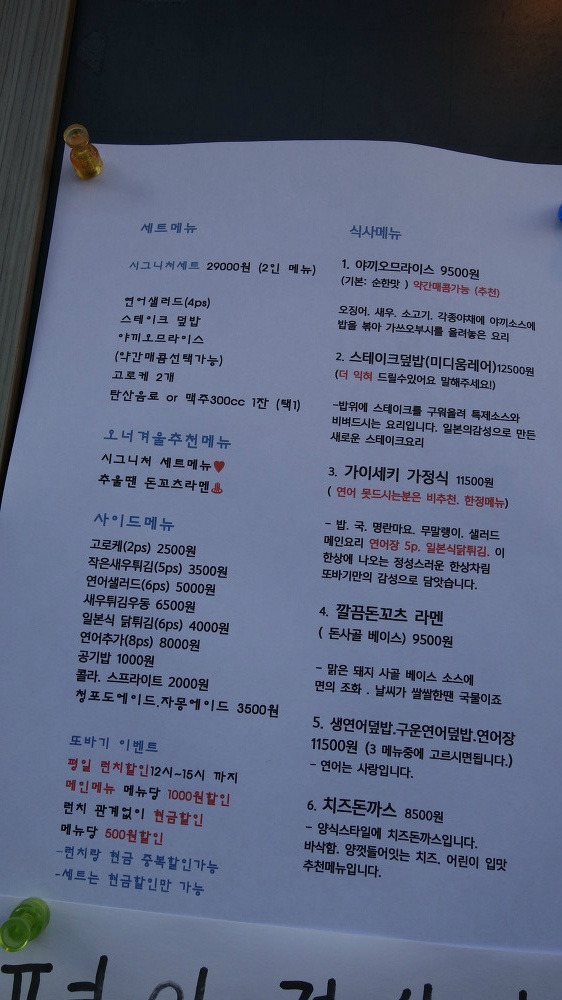 세트메뉴
시그니처세트 29000원 (2인 메뉴)
연어샐러드(4ps)
스테이크 덮밥
야끼오므라이스
(약간매콤선택가능)
고로케 2개
탄산음료 or 맥주300cc 1잔 (택1)
오너겨울추천메뉴
시그니처 세트메뉴♥
추울땐 돈꼬츠라멘♨
사이드메뉴
고로케(2ps) 2500원
작은새우튀김(5ps) 3500원
연어샐러드(6ps) 5000원
새우튀김우동 6500원
일본식 닭튀김(6ps) 4000원
연어추가(8ps) 8000원
공기밥 1000원
콜라. 스프라이트 2000원
청포도에이드.자몽에이드 3500원
또바기 이벤트
평일 런치할인12시~15시 까지
메인메뉴 메뉴당 1000원할인
런치 관계없이 현금할인
메뉴당 500원할인
-런치랑 현금 중복할인가능
-세트는 현금할인만 가능
식사메뉴
1. 야끼오므라이스 9500원
(기본: 순한맛 ) 약간매콤가능 (추천)
오징어. 새우. 소고기. 각종야채에 야끼소스에
밥을 볶아 가쓰오부시를 올려놓은 요리
2. 스테이크덮밥(미디움레어)12500원
(더 익혀 드릴수있어요 말해주세요!)
-밥위에 스테이크를 구워올려 특제소스와
비벼드시는 요리입니다. 일본의감성으로 만든
새로운 스테이크요리
3. 가이세키 가정식 11500원
( 연어 못드시는분은 비추천. 한정메뉴)
- 밥. 국. 명란마요. 무말랭이. 샐러드
메인요리 연어장 5p. 일본식닭튀김. 이
한상에 나오는 정성스러운 한상차림
또바기만의 감성으로 담앗습니다.
4. 깔끔돈꼬츠 라멘
( 돈사골 베이스) 9500원
- 맑은 돼지 사골 베이스 소스에
면의 조화 . 날씨가 쌀쌀한땐 국물이죠
5. 생연어덮밥.구운연어덮밥.연어장
11500원 (3 메뉴중에 고르시면됩니다.)
- 연어는 사랑입니다.
6. 치즈돈까스 8500원
- 양식스타일에 치즈돈까스입니다.
바삭함. 양껏들어잇는 치즈. 어린이 입맛
추천메뉴입니다.